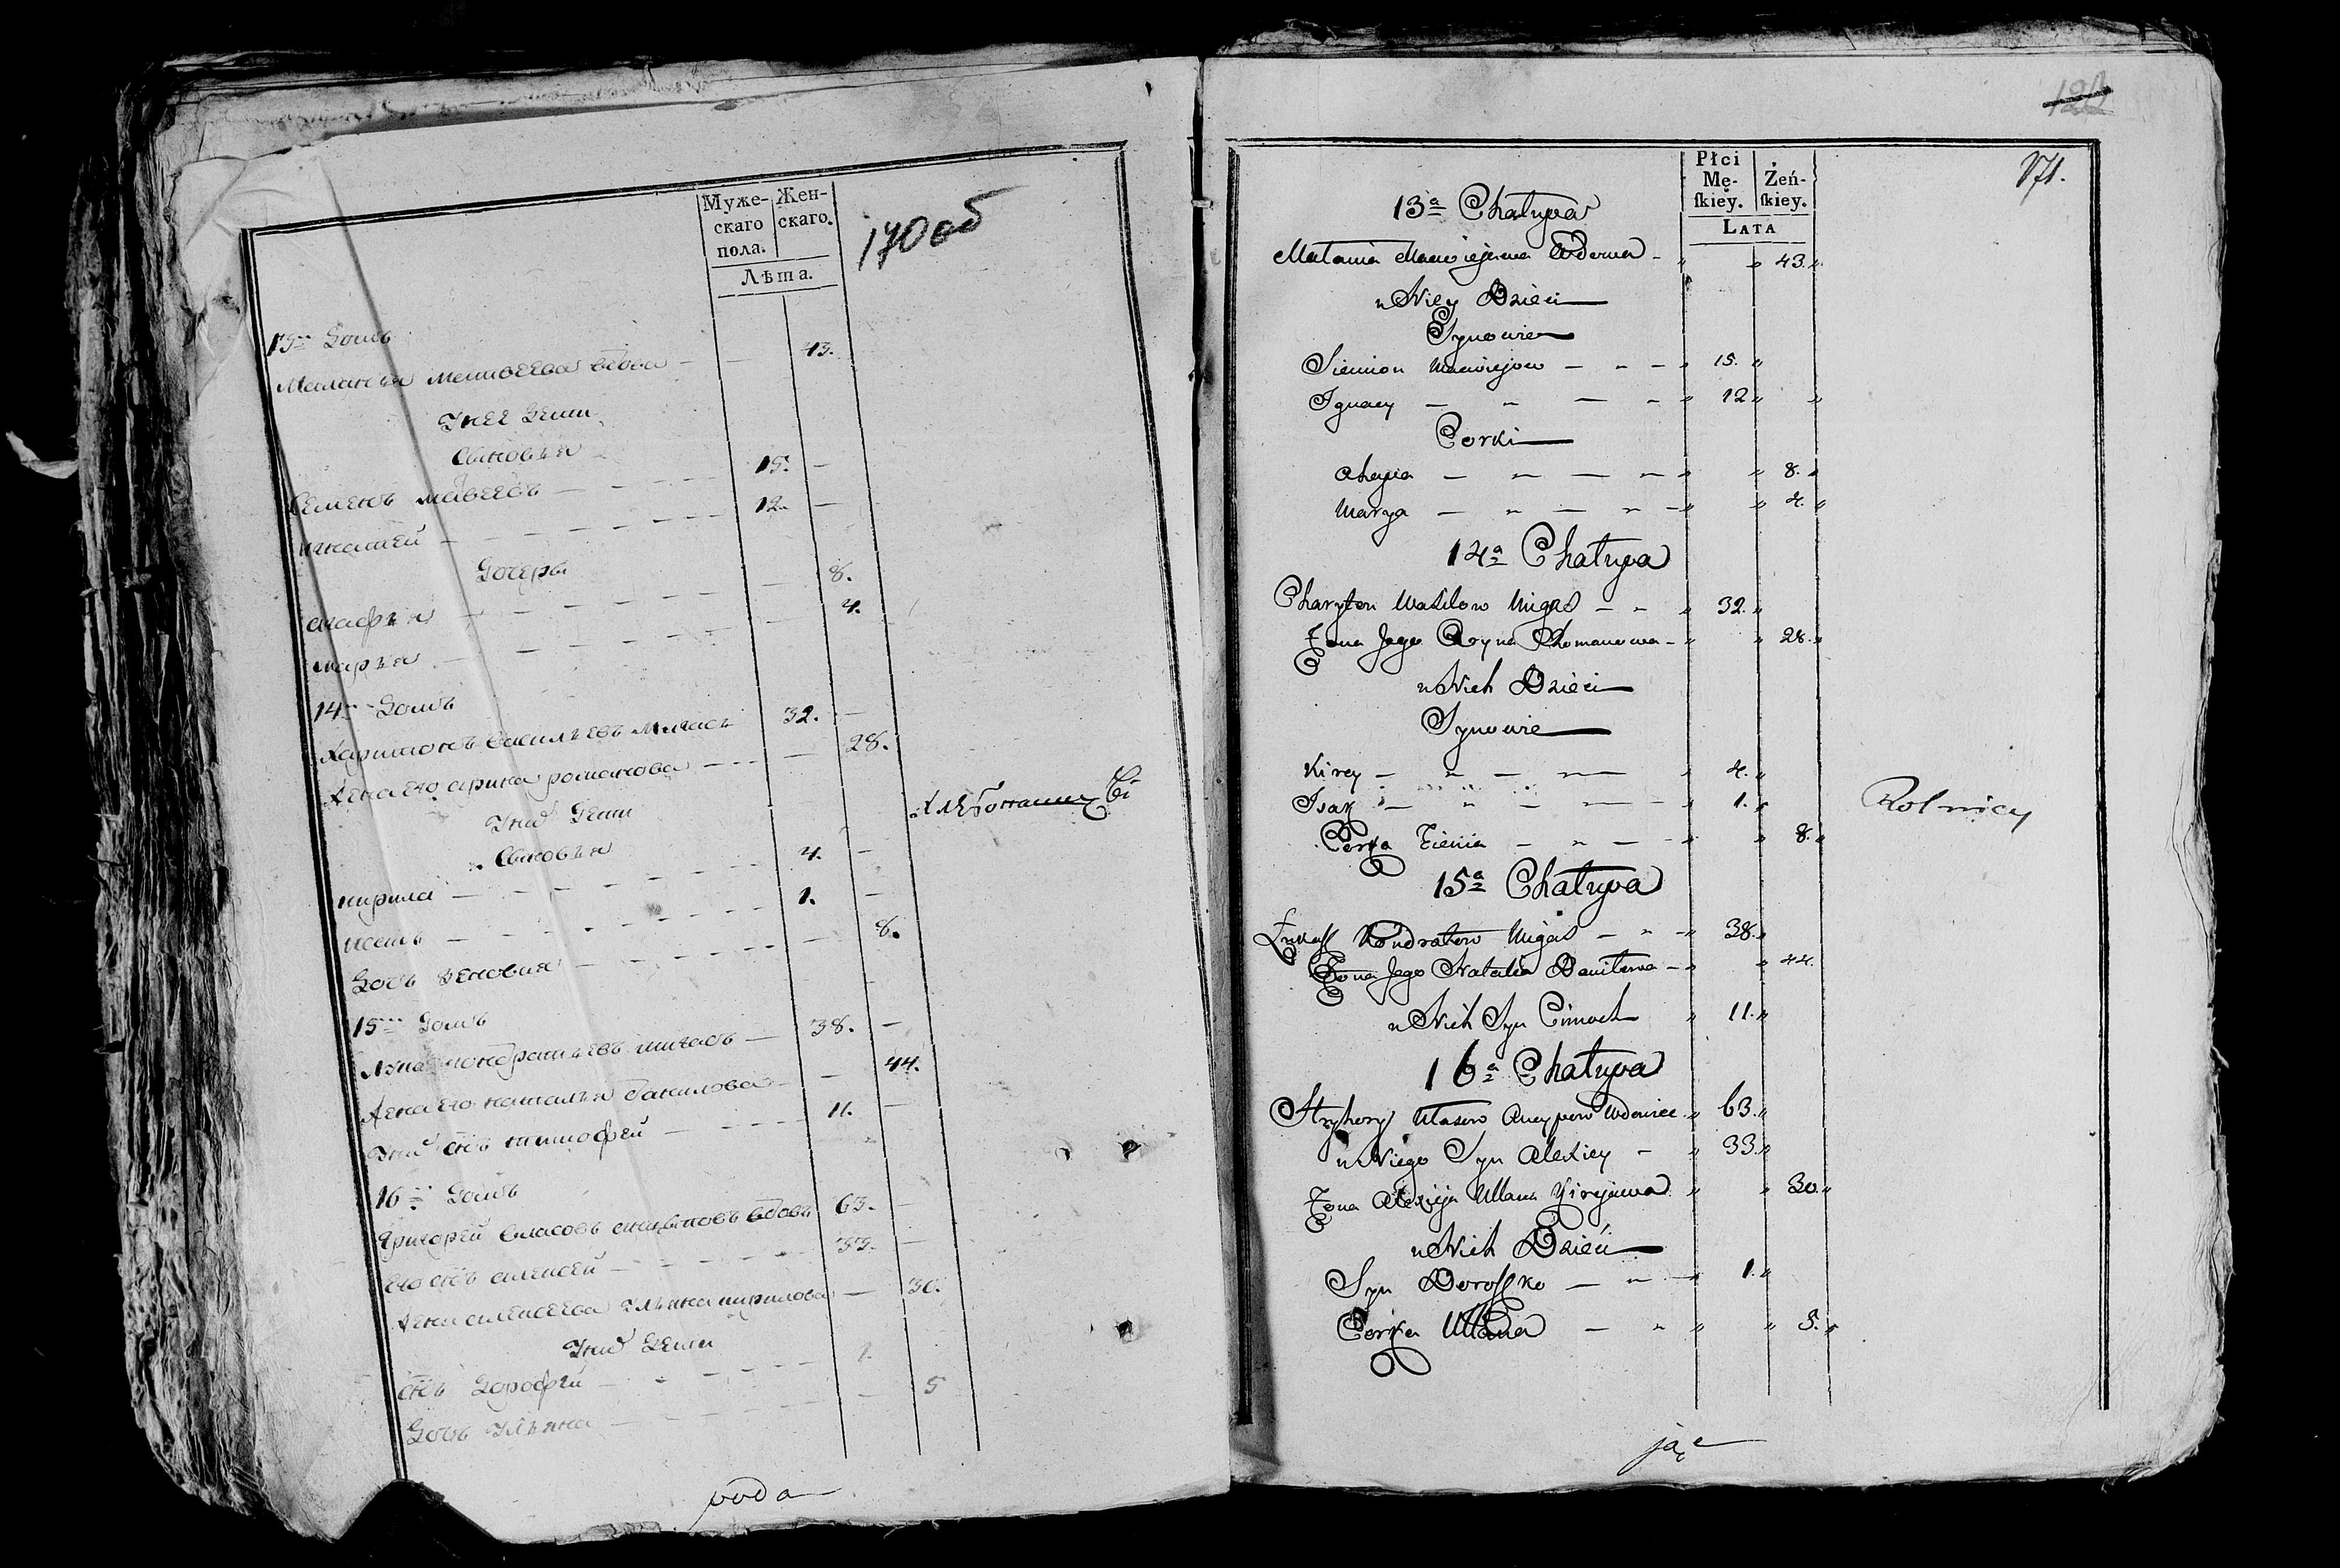 Муже-
скаго
пола.
Жен-
скаго.
Лѣта.
170 об
13й Домъ
Маланья матвеева вдова — — 43.
Унее дети
Сыновья
Семенъ матвеевъ — 15. —
игнатей — 12. —
Дочеры
агафья — 8.
марья — 4.
14й Домъ
Харитонъ Васильевъ Мигасъ 32. —
Жена его арина романова — 28.
Уних Дети
Сыновья
кирила — 4. —
исакъ — 1. —
Дочь зеновия — 8.
Хлебопашцы
15й Домъ
Лука кондратьевъ мигасъ — 38. —
Жена его наталья данилова — 44.
Уних сынъ тимофей — 11. —
16й Домъ
Григорей власовъ вдовъ 63. —
его сынъ алексей — 33. —
Жена алексеева Ульяна кирилова — 30.
Уних Дети
сынъ Дорофей — 1.
Дочь Ульяна — 5
poda
171.
Płci
Mę-
ſkiey.
Żeń-
ſkiey.
LATA
13a Chałupa
Małania Maciejewa Wdowa 43.
u Niey Dzieci
Synowie
Siemion Maciejow 15.
Ignacy 12
Corki
8.
Marya 4.
14a Chałupa
Charyton Wasilow Migas 32.
Żona Jego Aryna Romanowa 28.
u Nich Dzieci
Synowie
Kirey 4.
Isak 1.
Corka Zienia 8.
Rolnicy
15a Chałupa
Łukasz Kondratow Migas 38.
Żona Jego Natalia Daniłowa 44.
u Nich Syn Cimoch 11.
16a Chałupa
Hryhory Własow Wdowiec 63.
u Niego Syn Alexiey 33.
Żona Alexieja Ullana Kirejewa 30.
u Nich Dzieci
Syn Doroszko 1.
Corka Ullana 5.
jąc